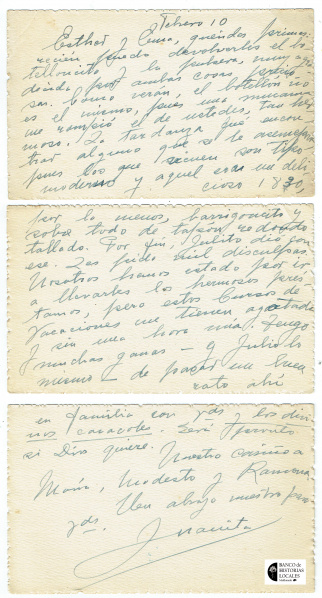 Febrero 10
Esther y Ema, queridas primas:
recién puedo devolverles el bo-
telloncito y la pulsera, muy agra-
decida por ambas cosas, perdó-
sen. Como verán, el botellón no
es el mismo, pues una mucama
me rompió el de ustedes, tan her-
moso. La tardanza fué encon-
trar alguno que se le asemejara
pues los que vienen son tipo
moderno y aquel era un deli-
cioso 1830,
por lo menos, barrigoncito y
sobre todo de tapón redondo
tallado. Por fin, Julito dió con
ese. Les pido mil disculpas.
Nosotros hemos estado por ir
a llevarles los hermosos pres-
tamos, pero estos Cursos de
Vacaciones me tienen agotada
y sin una hora mía. Tengo
muchas ganas - y Julio lo
mismo - de pasar un buen
rato ahí
en familia con Yds y los divi-
nos caracoles. Será pronto
si Dios quiere.
Nuestro cariño a
María, Modesto y Ramona.
Un abrazo nuestro para
Yds.
Juanita
BANCO de
HISTORIAS
LOCALES